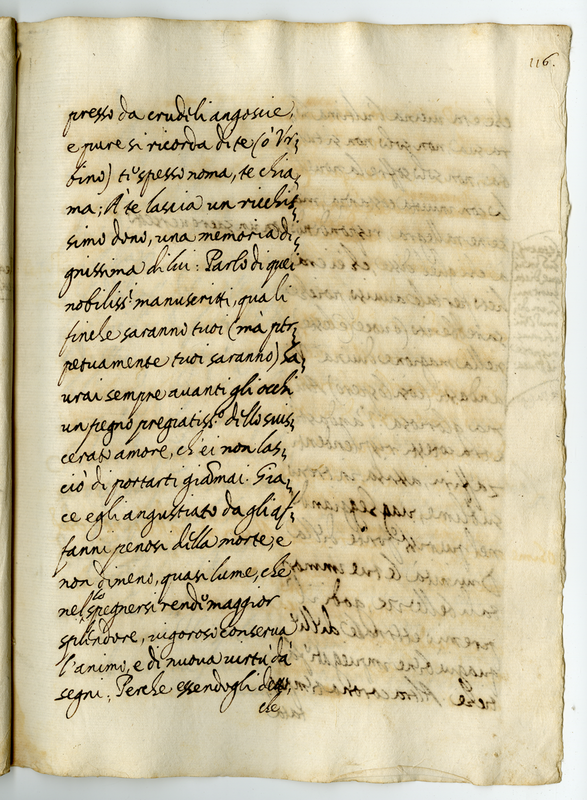 116.
presso da crudeli angoscie,
e pure si ricorda di te (ò Vr-
bino) te spesso noma, te chia-
ma; A te lascia un ricchis-
simo dono, una memoria di-
gnissima di lui: Parlo di quei
nobiliss.i manuscritti, quali
finche saranno tuoi (mà per-
petuamente tuoi saranno) ha-
urai sempre auanti gli occhi
un pegno pregiatiss.o dello suis-
cerato amore, ch'ei non las-
ciò di portarti giamai. Gia-
ce egli angustiato da gli af-
fanni penosi della morte, e
non dimeno, quasi lume, che
nello spegnersi rende maggior
splendore, uigoroso conserua
l'animo, e di nuoua uirtù dà
segni; Perche essendogli
che